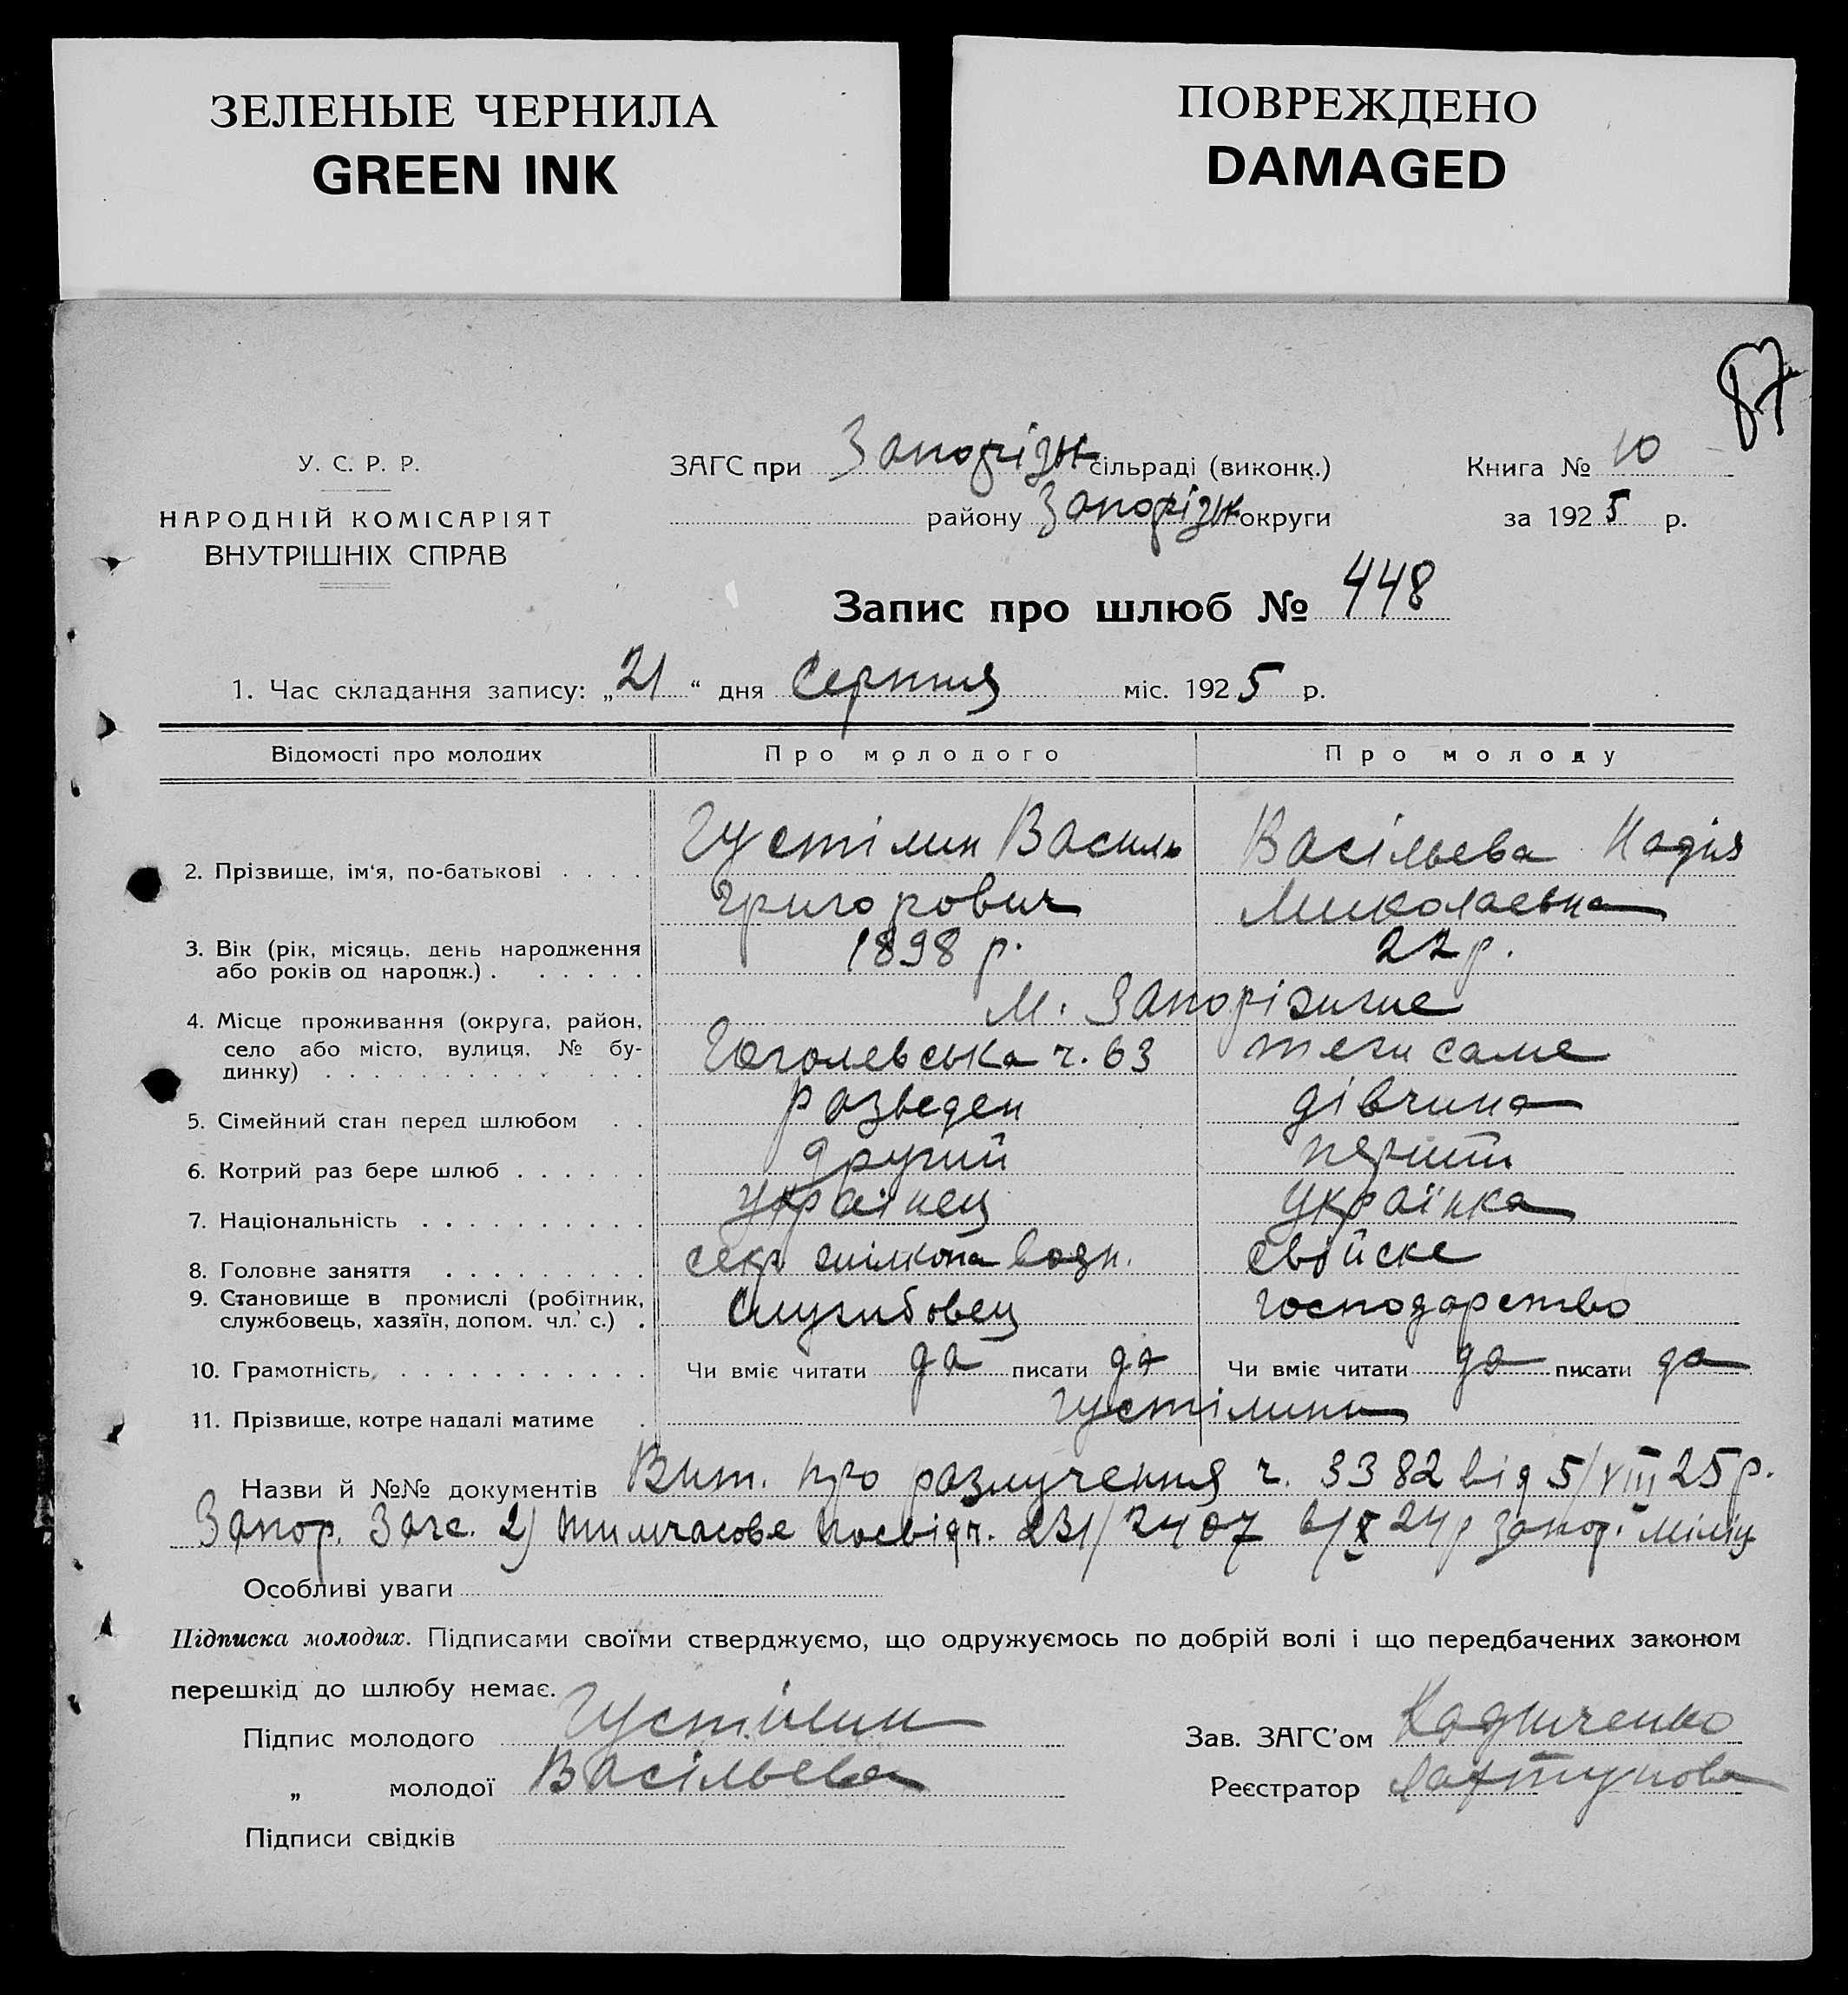 ЗЕЛЕНЫЕ ЧЕРНИЛА
GREEN INK
ПОВРЕЖДЕНО
DAMAGED
87
У. С. Р. Р.
НАРОДНІЙ КОМІСАРІЯТ
ВНУТРІШНІХ СПРАВ
ЗАГС при Запорізьк сільраді (виконк.)
району Запорізьк округи
Книга № 10
за 1925 р.
Запис про шлюб № 448
1. Час складання запису: „21“ дня Серпня міс. 1925 р.
Відомості про молодих Про молодого Про молоду
2. Прізвище, ім'я, по-батькові . . . . Густілин Василь Васільева Надія
Григорович Миколаевна
3. Вік (рік, місяць, день народження
або років од народж.) . . . . . . 1898 р. 22 р.
4. Місце проживання (округа, район,
село або місто, вулиця, № бу-
динку) . . . . . . . . . . . . .
М. Запоріжже
Гоголевська ч. 63 теж саме
5. Сімейний стан перед шлюбом . . разведен дівчина
6. Котрий раз бере шлюб . . . . . . другий перший
7. Національність . . . . . . . . . . українец українка
8. Головне заняття . . . . . . . . . секр водн. свійске
9. Становище в промислі (робітник,
службовець, хазяїн, допом. чл. с.) . Службовец господарство
10. Грамотність . . . . . . . . . . . . Чи вміє читати да писати да Чи вміє читати да писати да
11. Прізвище, котре надалі матиме . Густілини
Назви й №№ документів Вит. про разлучення ч. 3382 від 5/VIII 25 р.
Запор. Загс. 2) тимчасове посвідч. 231/2407 6/X 24 р Запор. міліц
Особливі уваги
Підписка молодих. Підписами своїми стверджуємо, що одружуємось по добрій волі і що передбачених законом
перешкід до шлюбу немає.
Підпис молодого Густілин
„ молодої Васільева
Підписи свідків
Зав. ЗАГС'ом
Реєстратор